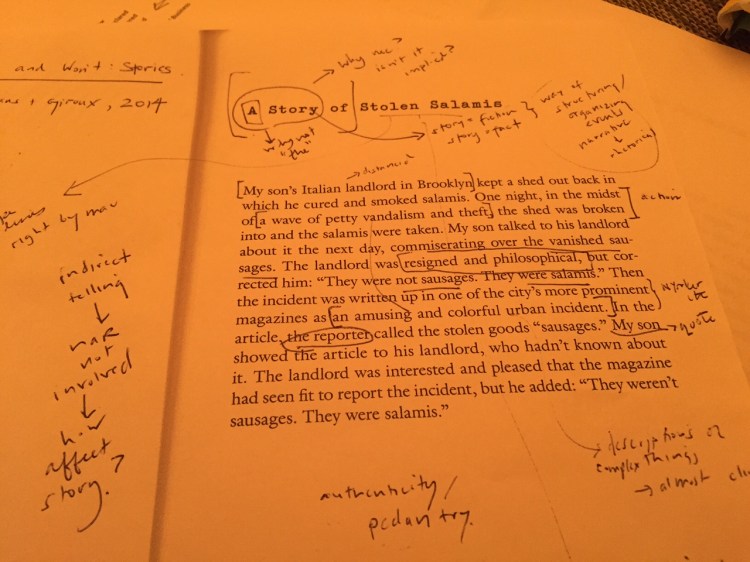 and Won't : Stories
Giroux, 2014
why nec?
isn't it
implicit?
A Story of Stolen Salamis
why not
"the"
story = fiction
story = fact
way of
structuring/
organizing
events
narrative
distanced
My son's Italian landlord in Brooklyn kept a shed out back in
which he cured and smoked salamis. One night, in the midst
of a wave of petty vandalism and theft, the shed was broken
into and the salamis were taken. My son talked to his landlord
about it the next day, commiserating over the vanished sau-
sages. The landlord was resigned and philosophical, but cor-
rected him: "They were not sausages. They were salamis." Then
the incident was written up in one of the city's more prominent
magazines as an amusing and colorful urban incident. In the
article, the reporter called the stolen goods "sausages." My son
showed the article to his landlord, who hadn't known about
it. The landlord was interested and pleased that the magazine
had seen fit to report the incident, but he added: "They weren't
sausages. They were salamis."
action
quote
right by mau
indirect
telling
nar
not
involved
how
affect
story?
descriptions of
complex things
almost
authenticity/
pedantry.